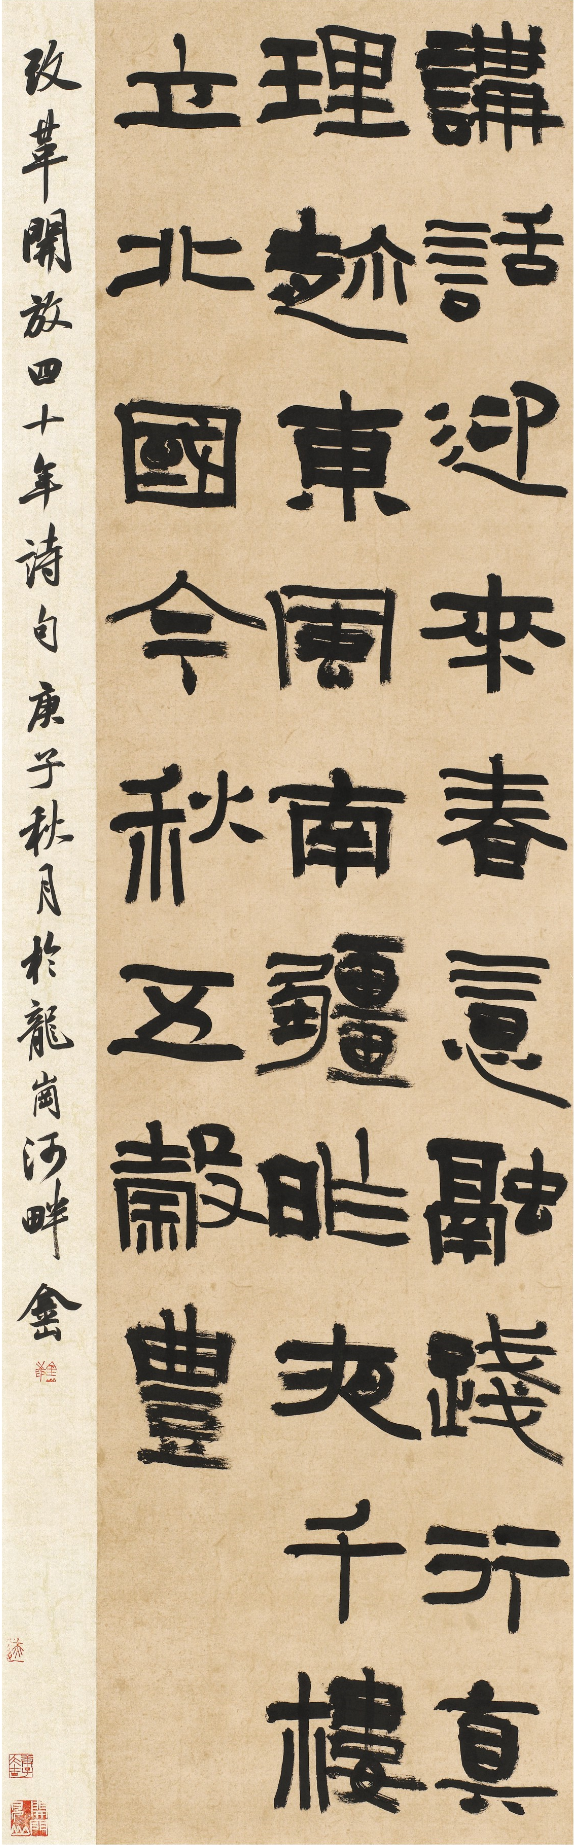 講話迎來春意融踐行真
理趂東風南疆昨夜千樓
立北國今秋五穀豐
改革開放四十年詩句庚子秋月於龍崗河畔